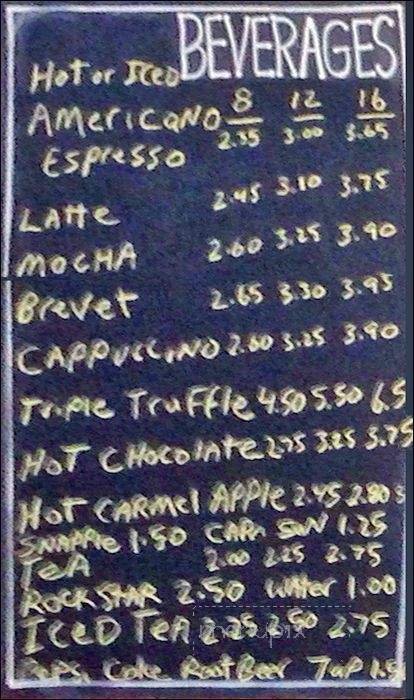 BEVERAGES
Hot or Iced
8 12 16
AMericANO 2.35 3.00 3.65
Espresso
LAtte 2.45 3.10 3.75
MOCHA 2.60 3.25 3.90
Brevet 2.65 3.30 3.95
CAPPUCCINO 2.60 3.25 3.90
Triple Truffle 4.50 5.50 6.5
HOT CHocolate 2.75 3.25 3.75
HOT CARMel APPle 2.45 2.80
SNAPPle 1.50 CAPri SUN 1.25
TeA 2.00 2.25 2.75
ROCKSTAR 2.50 WAter 1.00
ICED TeA 2.25 2.50 2.75
Coke Root Beer 7up 1.5